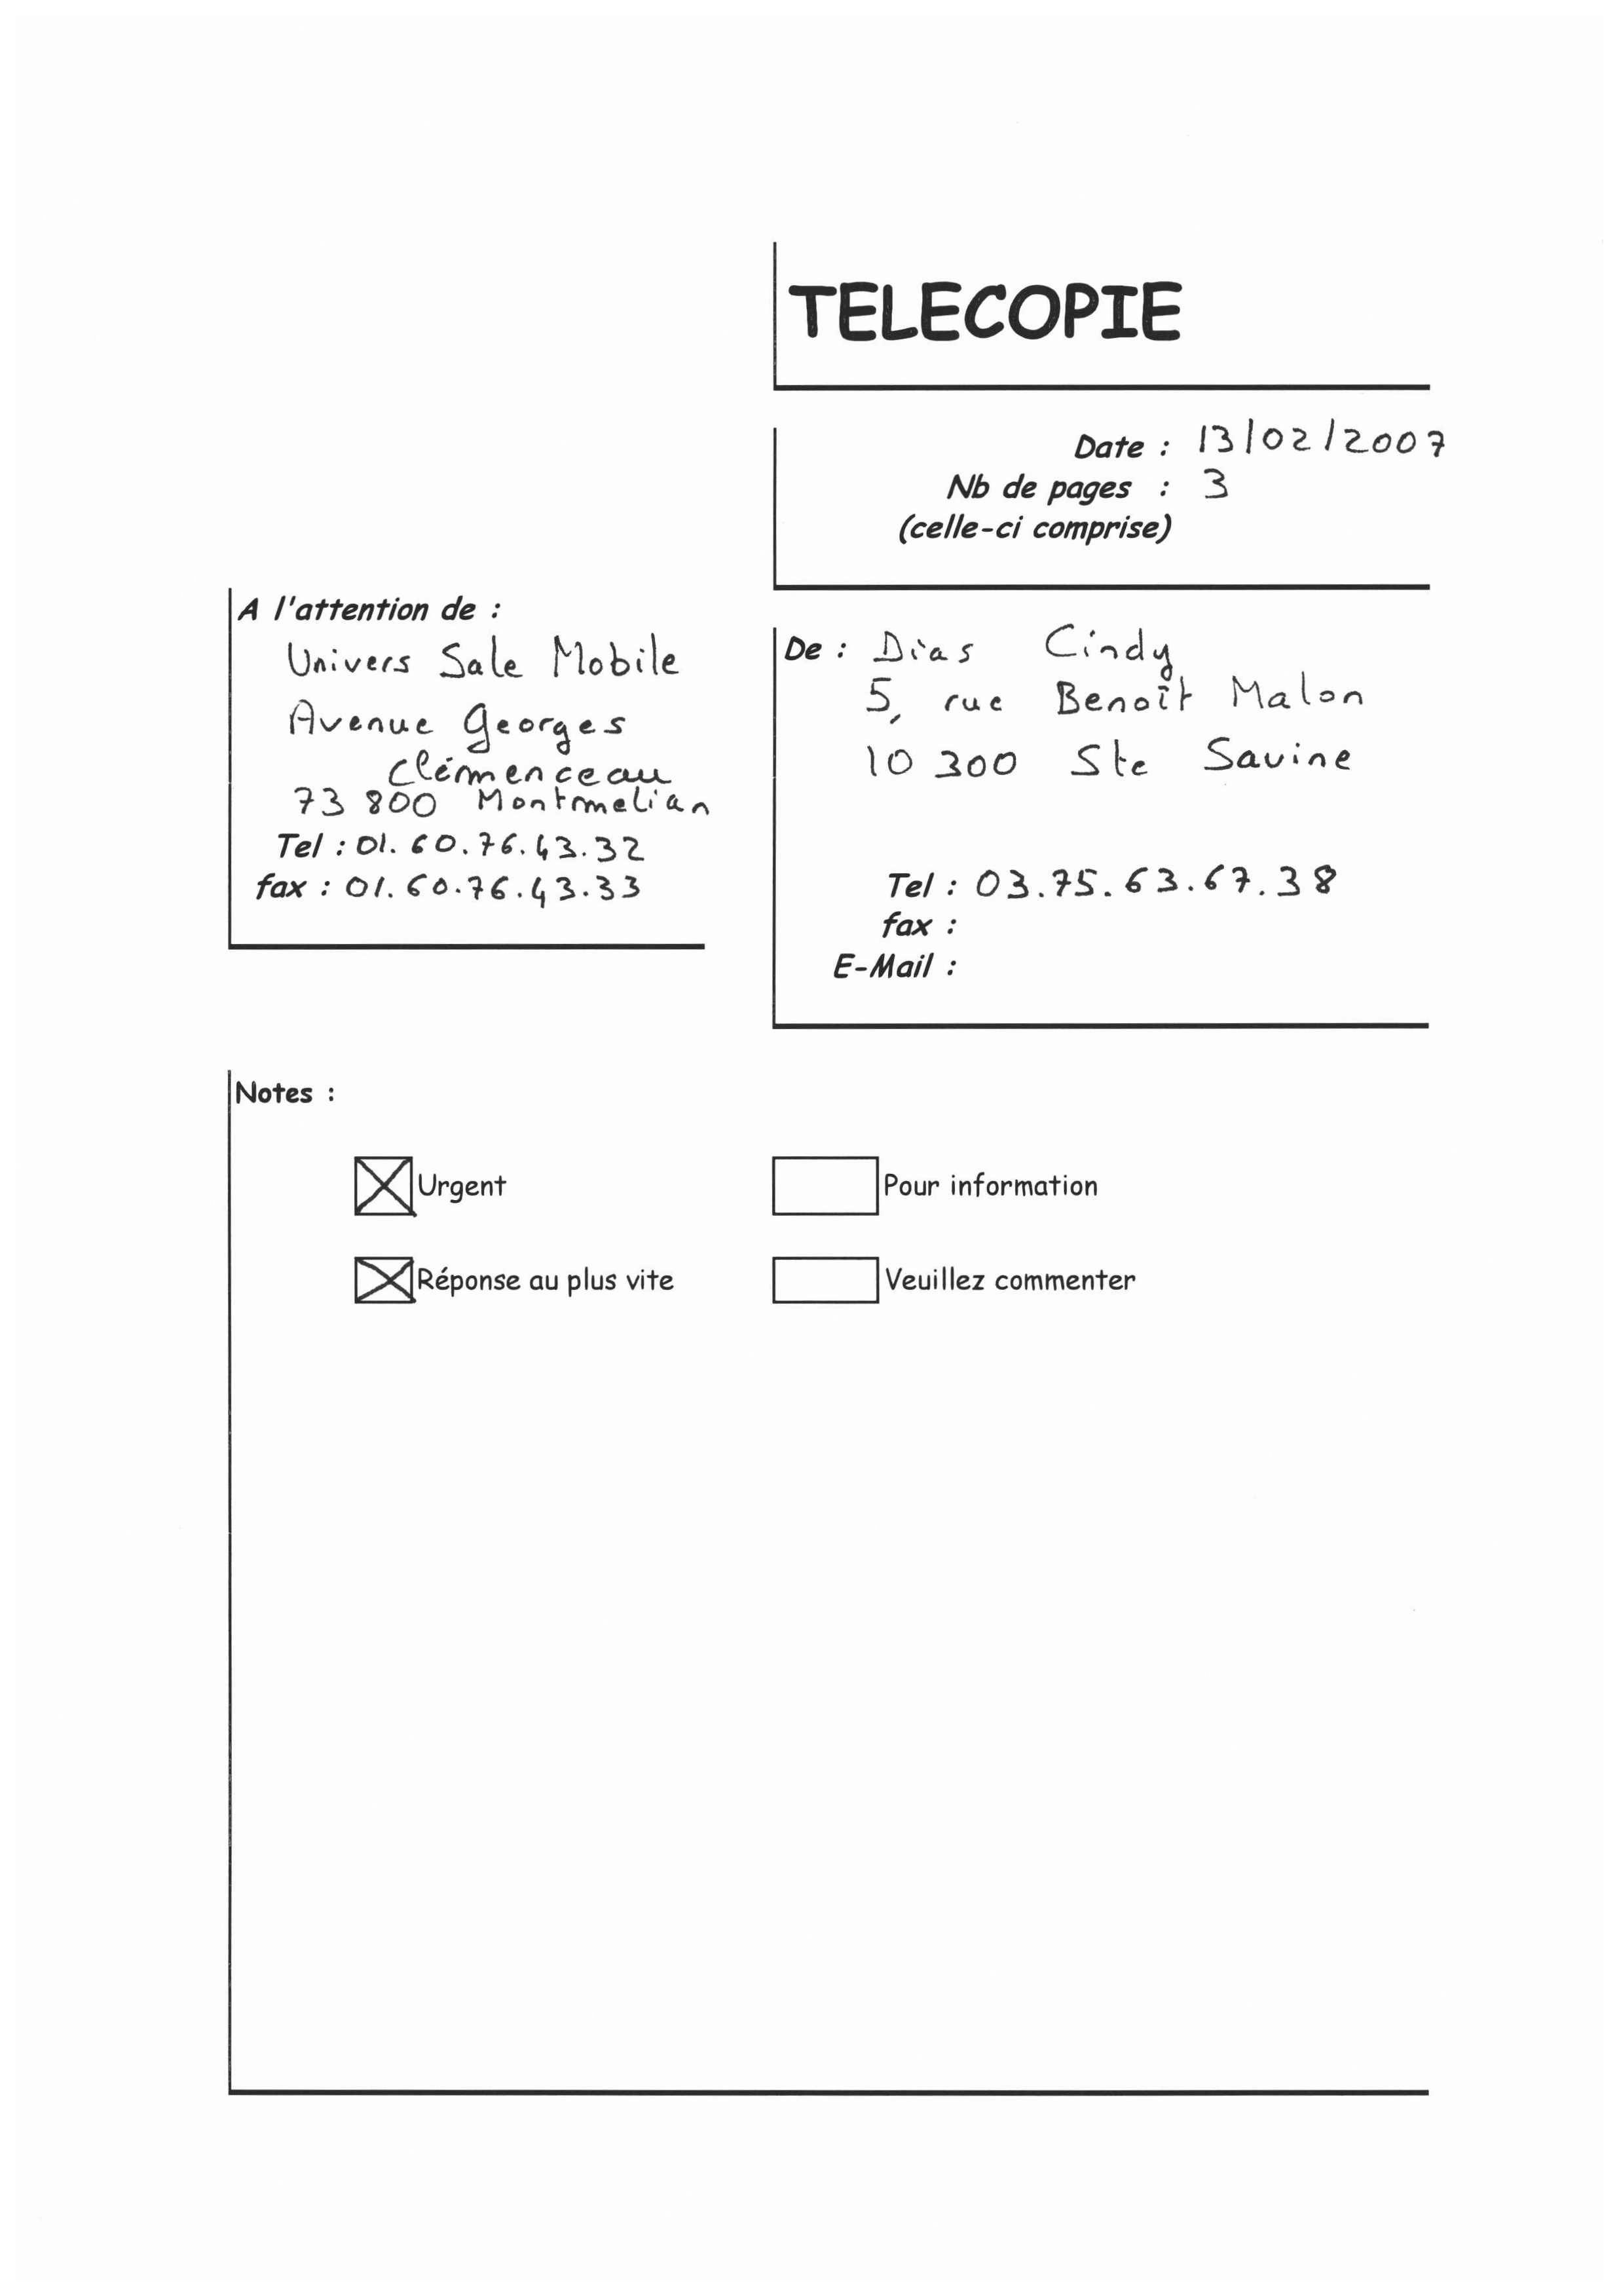 TELECOPIE
Date : 13/02/2007
Nb de pages : 3
(celle-ci comprise)
A l'attention de :
Univers Sale Mobile
Avenue Georges
Clémenceau
73 800 Montmelian
Tel : 01.60.76.43.32
fax : 01.60.76.43.33
De : Dias Cindy
5, rue Benoît Malon
10 300 Ste Savine
Tel : 03.75.63.67.38
fax :
E-Mail :
Notes :
Urgent
Pour information
Réponse au plus vite
Veuillez commenter